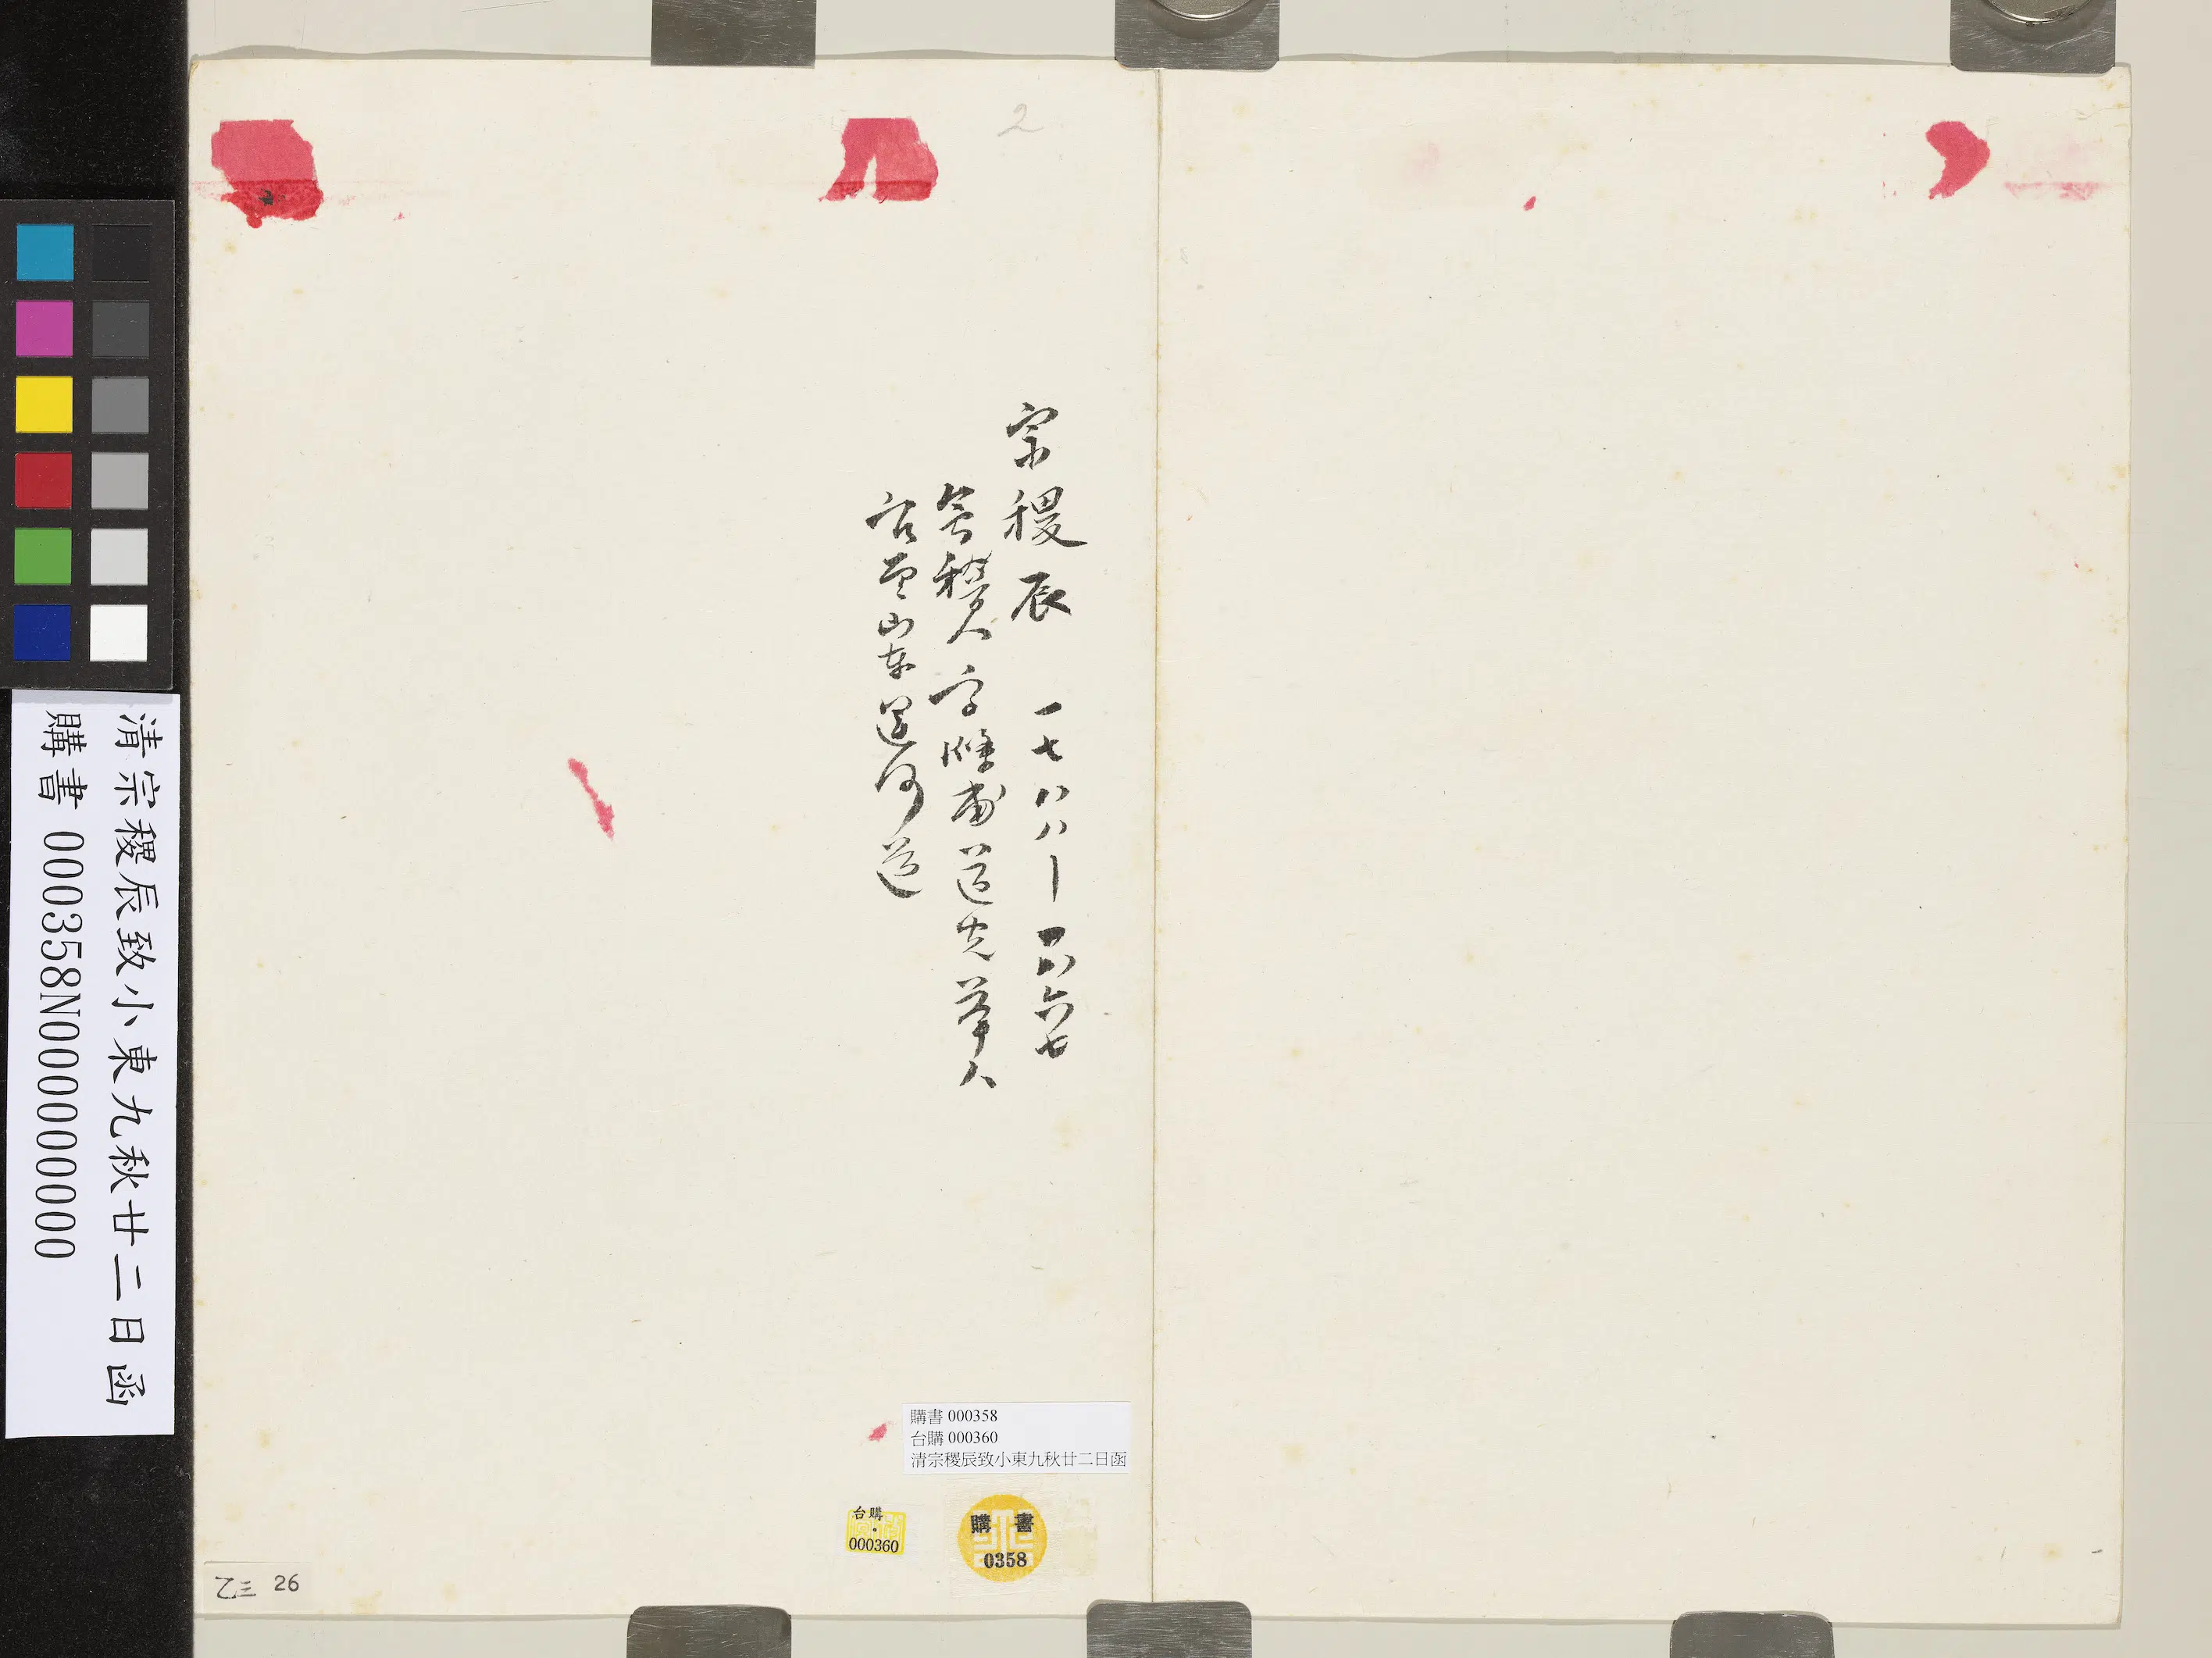 宗稷辰 一七八八—一八六七
會稽人 字滌甫 道光舉人
官至山东運河道
2
清宗稷辰致小東九秋廿二日函
購書 000358N000000000
購書 000358
台購 000360
清宗稷辰致小東九秋廿二日函
台購
000360
購書
0358
乙三 26